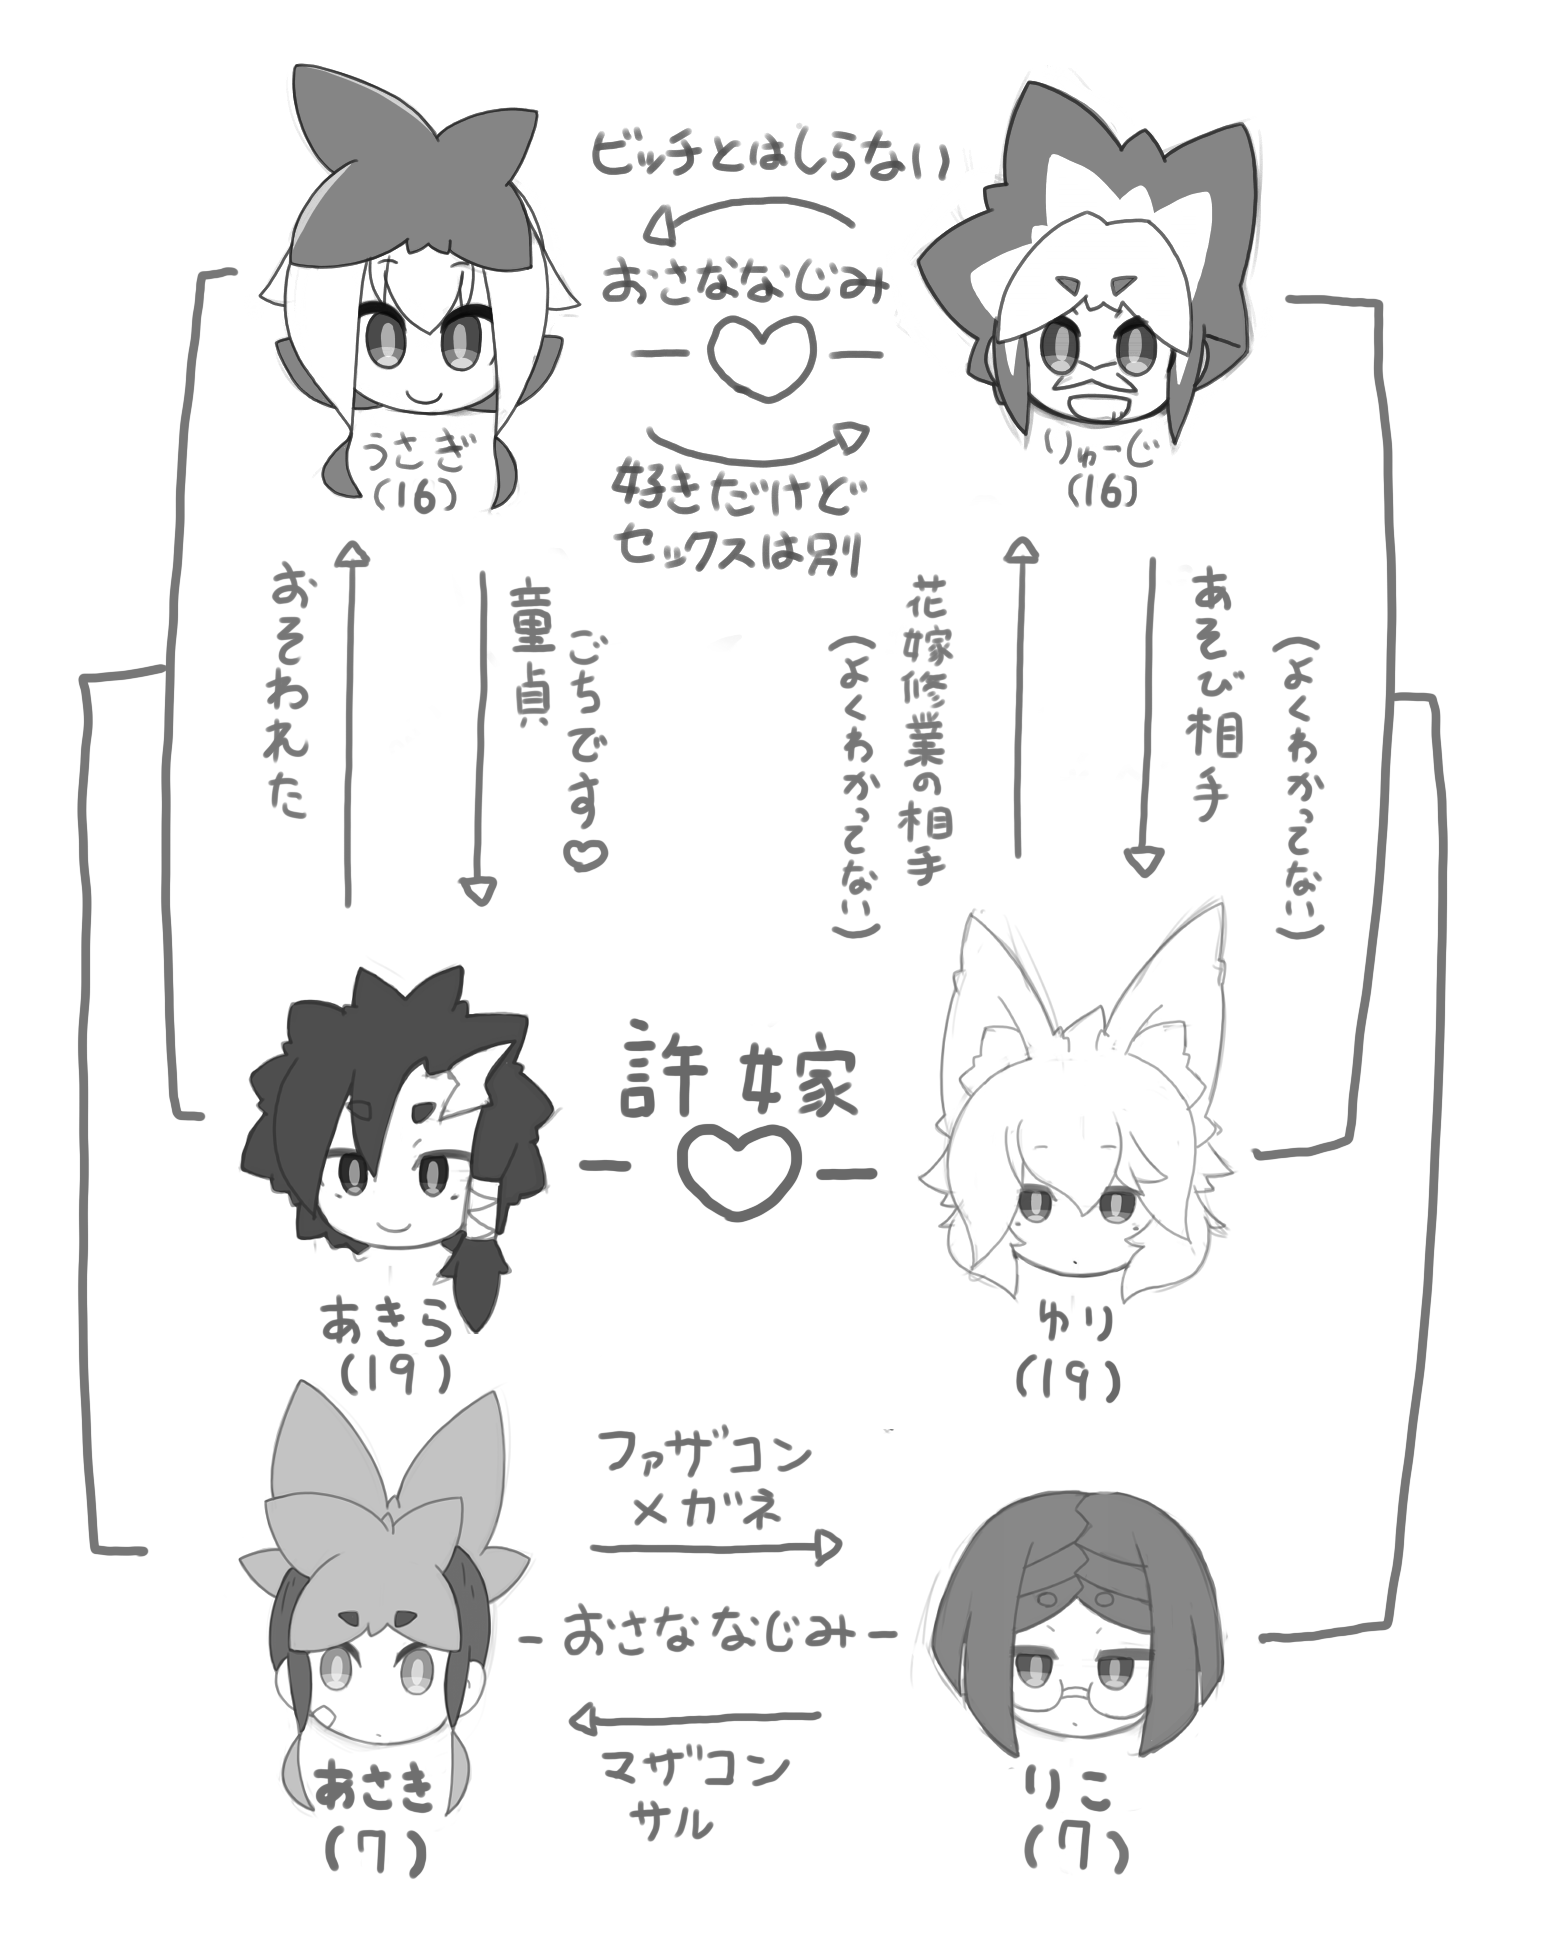 ビッチとはしらない
おさななじみ
好きだけど
セックスは別
うさぎ
(16)
りゅーじ
(16)
おそわれた
童貞
ごちです♡
花嫁修業の相手
(よくわかってない)
あそび相手
(よくわかってない)
許嫁
あきら
(19)
ゆり
(19)
ファザコン
メガネ
おさななじみ
マザコン
サル
あさき
(7)
りこ
(7)